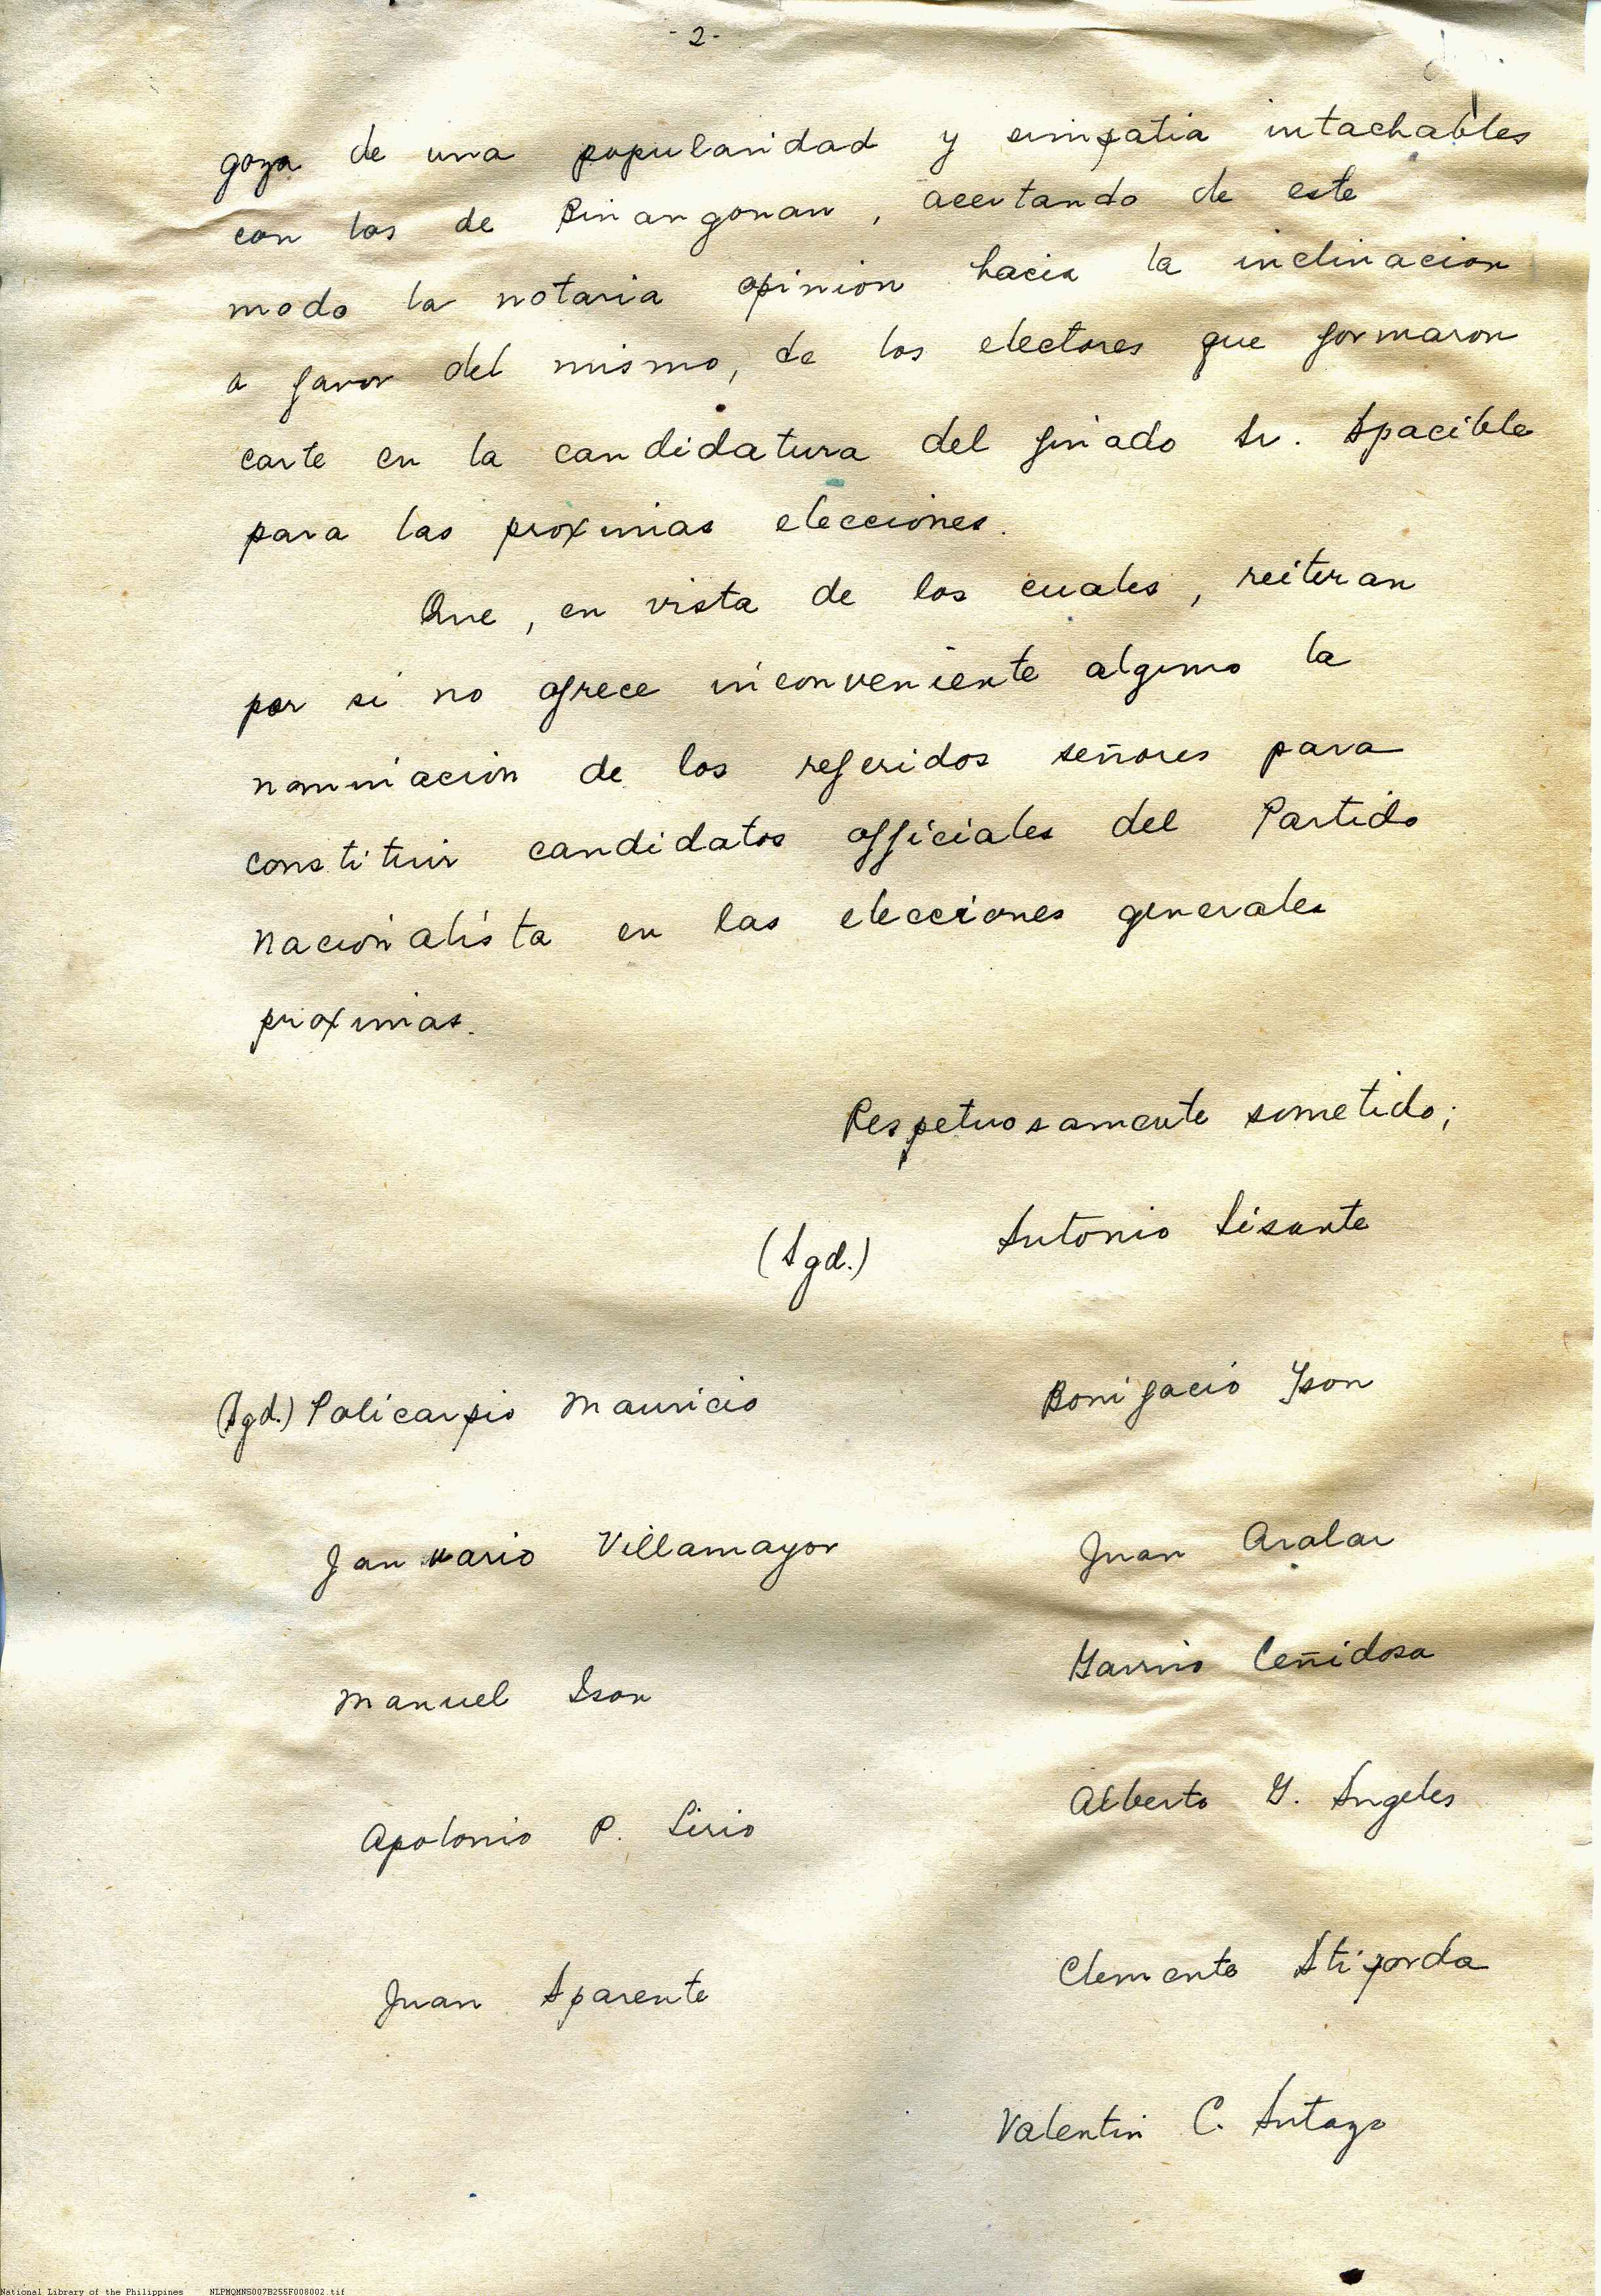 - 2 -
goza de una popularidad y simpatia intachables
con los de Binangonan, acertando de este
modo la notaria opinion hacia la inclinacion
a favor del mismo, de los electores que formaron
carte en la candidatura del finado Sr. Apacible
para las proximas elecciones.
Que, en vista de los cuales, reiteran
por si no ofrece inconveniente alguno la
nominacion de los referidos señores para
constituir candidatos officiales del Partido
Nacionalista en las elecciones generales
proximas.
Respetuosamente sometido;
(Sgd.) Antonio Sisante
(Sgd.) Policarpio Mauricio Bonifacio Yson
Januario Villamayor Juan Aralar
Marino Ceñidosa
Manuel Ison
Alberto G. Angeles
Apolonio P. Lirio
Clemente
Juan Aparente
Valentin C. Antazo
National Library of the Philippines NLPMQMNS007B255F008002.tif